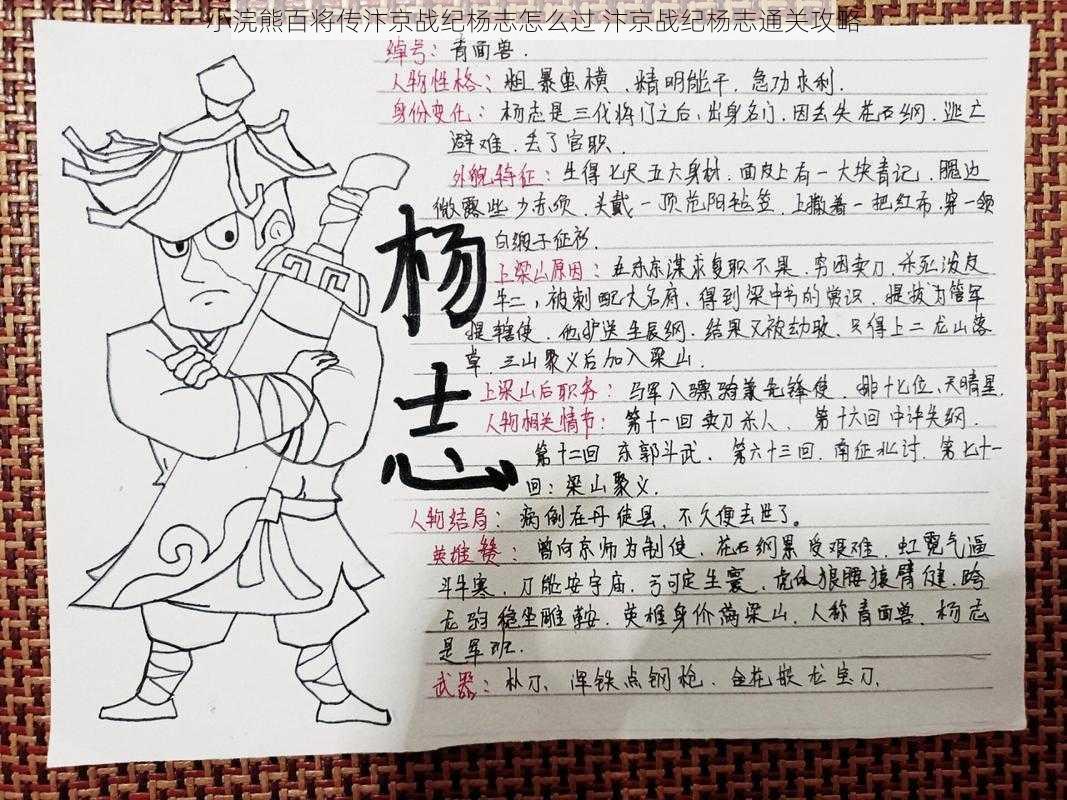 小浣熊百将传汴京战纪杨志怎么过 汴京战纪杨志通关攻略
绰号：青面兽．
人物性格：粗暴蛮横、精明能干．急功求利．
身份变化：杨志是三代将门之后，出身名门．因丢失花石纲．逃亡
避难．丢了官职．
外貌特征：生得七尺五六身材．面皮上有一大块青记．腮边
微露些少赤须．头戴一顶范阳毡笠．上撒着一把红布．穿一领
白缎子征衫．
上梁山原因：在东京谋求复职不果．穷困卖刀．杀死泼皮
牛二，被刺配大名府．得到梁中书的赏识．提拔为管军
提辖使．他护送生辰纲．结果又被劫取．只得上二龙山落
草．三山聚义后加入梁山．
上梁山后职务：马军八骠骑兼先锋使．排十七位．天暗星．
人物相关情节：第十一回 卖刀杀人． 第十六回 中计失纲．
第十二回 东郭斗武．第六十三回．南征北讨．第七十一
回：梁山聚义．
人物结局：病倒在丹徒县．不久便去世了。
英雄赞：曾向京师为制使．花石纲累受艰难．虹霓气逼
斗牛寒．刀能安宇庙．弓可定尘寰．虎体狼腰猿臂健．跨
龙驹稳坐雕鞍．英雄身价满梁山．人称青面兽．杨志
是军班．
武器：朴刀．浑铁点钢枪．金花嵌龙宝刀．
杨志